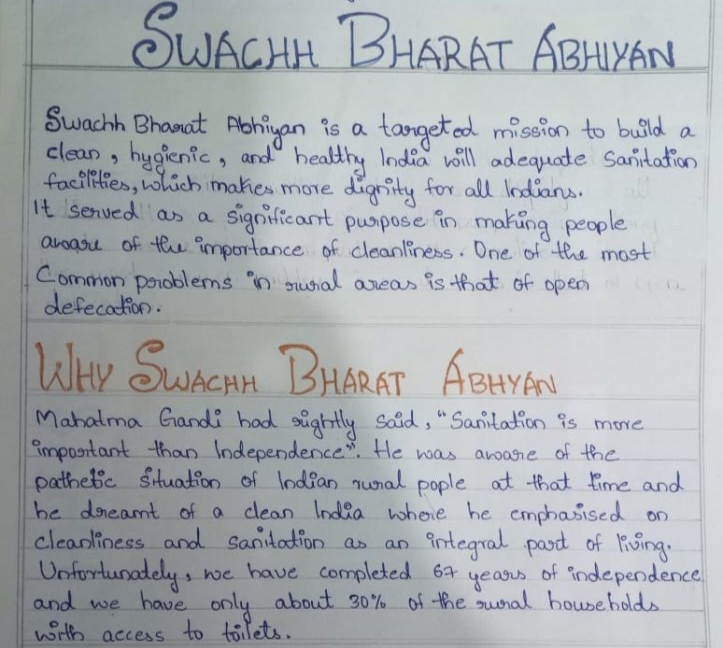 SWACHH BHARAT ABHIYAN
Swachh Bharat Abhiyan is a targeted mission to build a
clean, hygienic, and healthy India will adequate Sanitation
facilities, which makes more dignity for all Indians.
It served as a significant purpose in making people
aware of the importance of cleanliness. One of the most
Common problems in rural areas is that of open
defecation.
WHY SWACHH BHARAT ABHYAN
Mahatma Gandi had rightly said, "Sanitation is more
important than Independence". He was aware of the
pathetic situation of Indian rural pople at that time and
he dreamt of a clean India where he emphasised on
cleanliness and sanitation as an integral part of living.
Unfortunately, we have completed 67 years of independence
and we have only about 30% of the rural households
with access to toilets.